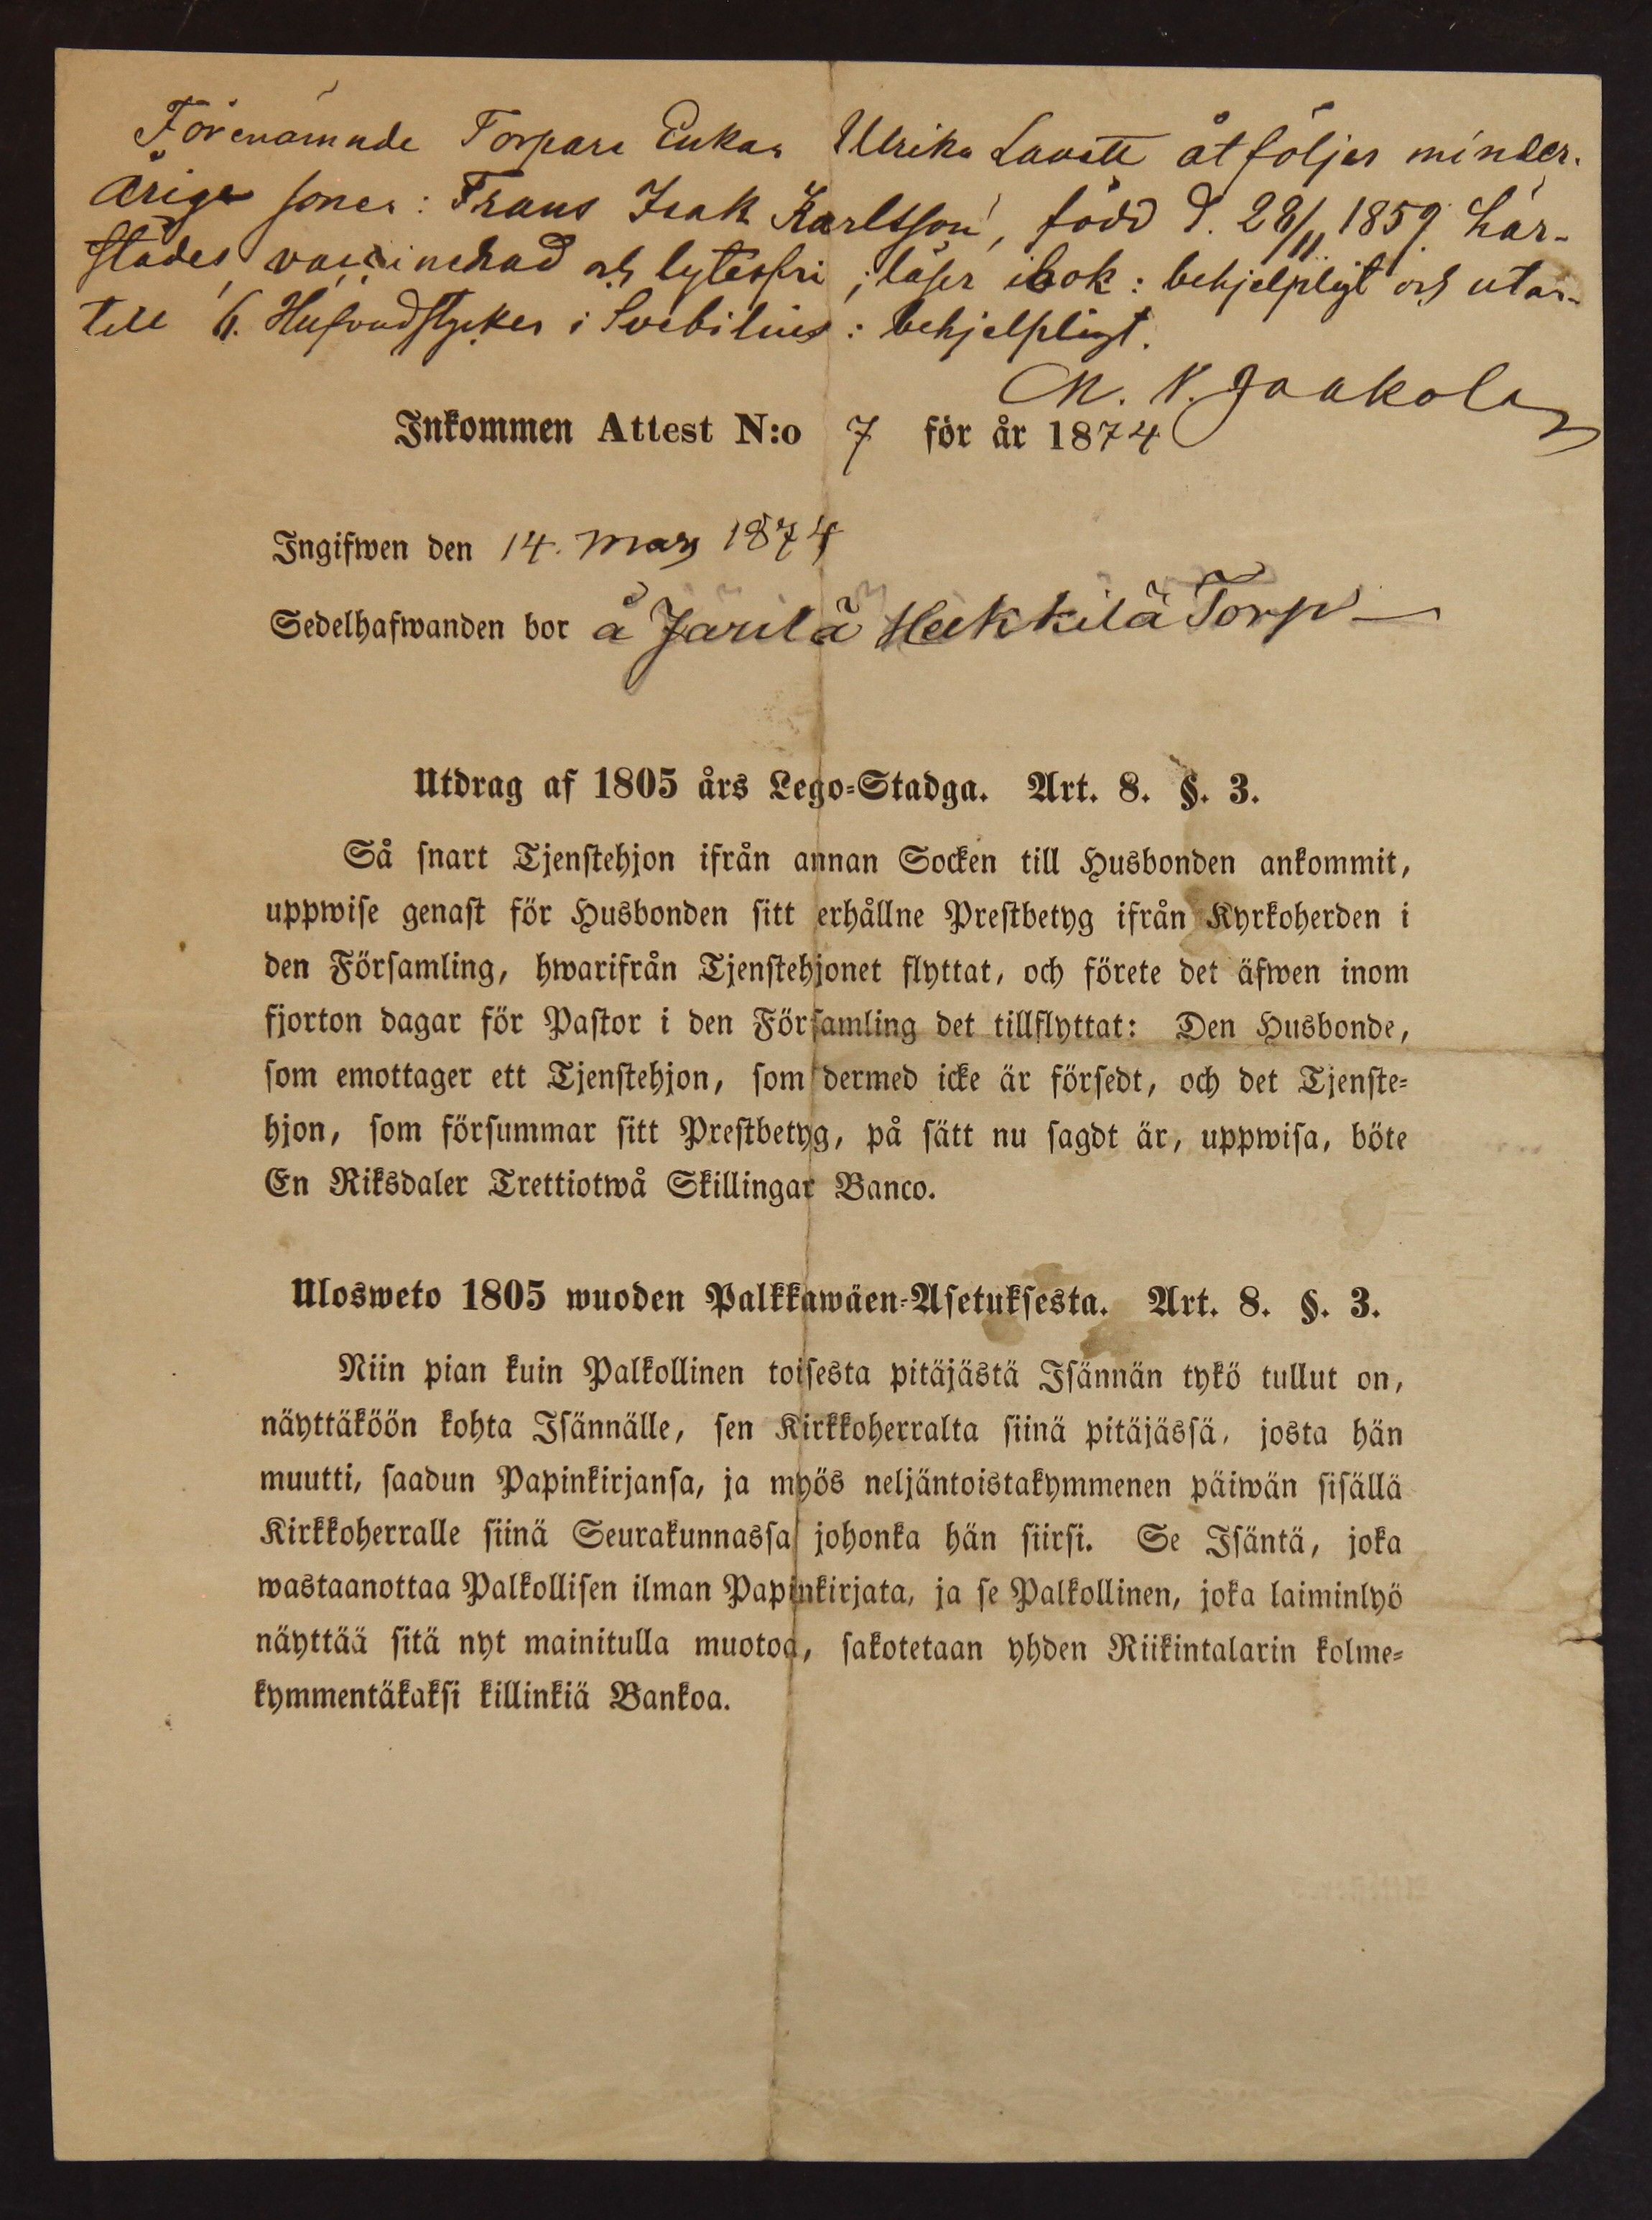 Förenämnde Torpare Enkan Ulrika åtföljer minder-
årige sonen: Frans Isak Karlsson, född d. 28/11 1859 här-
städes, vaccinerad och lytesfri; läser i bok: behjelpligt och utan-
till 6. Hufvudstycken i Svebilius: behjelpligt.
M. V. Jaakola
Inkommen Attest N:o 7 för år 1874
Ingifwen den 14. Mars 1874
Sedelhafwanden bor å Järilä Heikkilä Torp
Utdrag af 1805 års Lego-Stadga. Art. 8. §. 3.
Så snart Tjenstehjon ifrån annan Socken till Husbonden ankommit,
uppwise genast för Husbonden sitt erhållne Prestbetyg ifrån Kyrkoherden i
den Församling, hwarifrån Tjenstehjonet flyttat, och förete det äfwen inom
fjorton dagar för Pastor i den Församling det tillflyttat: Den Husbonde,
som emottager ett Tjenstehjon, som dermed icke är försedt, och det Tjenste-
hjon, som försummar sitt Prestbetyg, på sätt nu sagdt är, uppwisa, böte
En Riksdaler Trettiotwå Skillingar Banco.
Ulosweto 1805 wuoden Palkkawäen-Asetuksesta. Art. 8. §. 3.
Niin pian kuin Palkollinen toisesta pitäjästä Isännän tykö tullut on,
näyttäköön kohta Isännälle, sen Kirkkoherralta siinä pitäjässä, josta hän
muutti, saadun Papinkirjansa, ja myös neljäntoistakymmenen päiwän sisällä
Kirkkoherralle siinä Seurakunnassa johonka hän siirsi. Se Isäntä, joka
wastaanottaa Palkollisen ilman Papinkirjata, ja se Palkollinen, joka laiminlyö
näyttää sitä nyt mainitulla muotoa, sakotetaan yhden Riikintalarin kolme-
kymmentäkaksi killinkiä Bankoa.